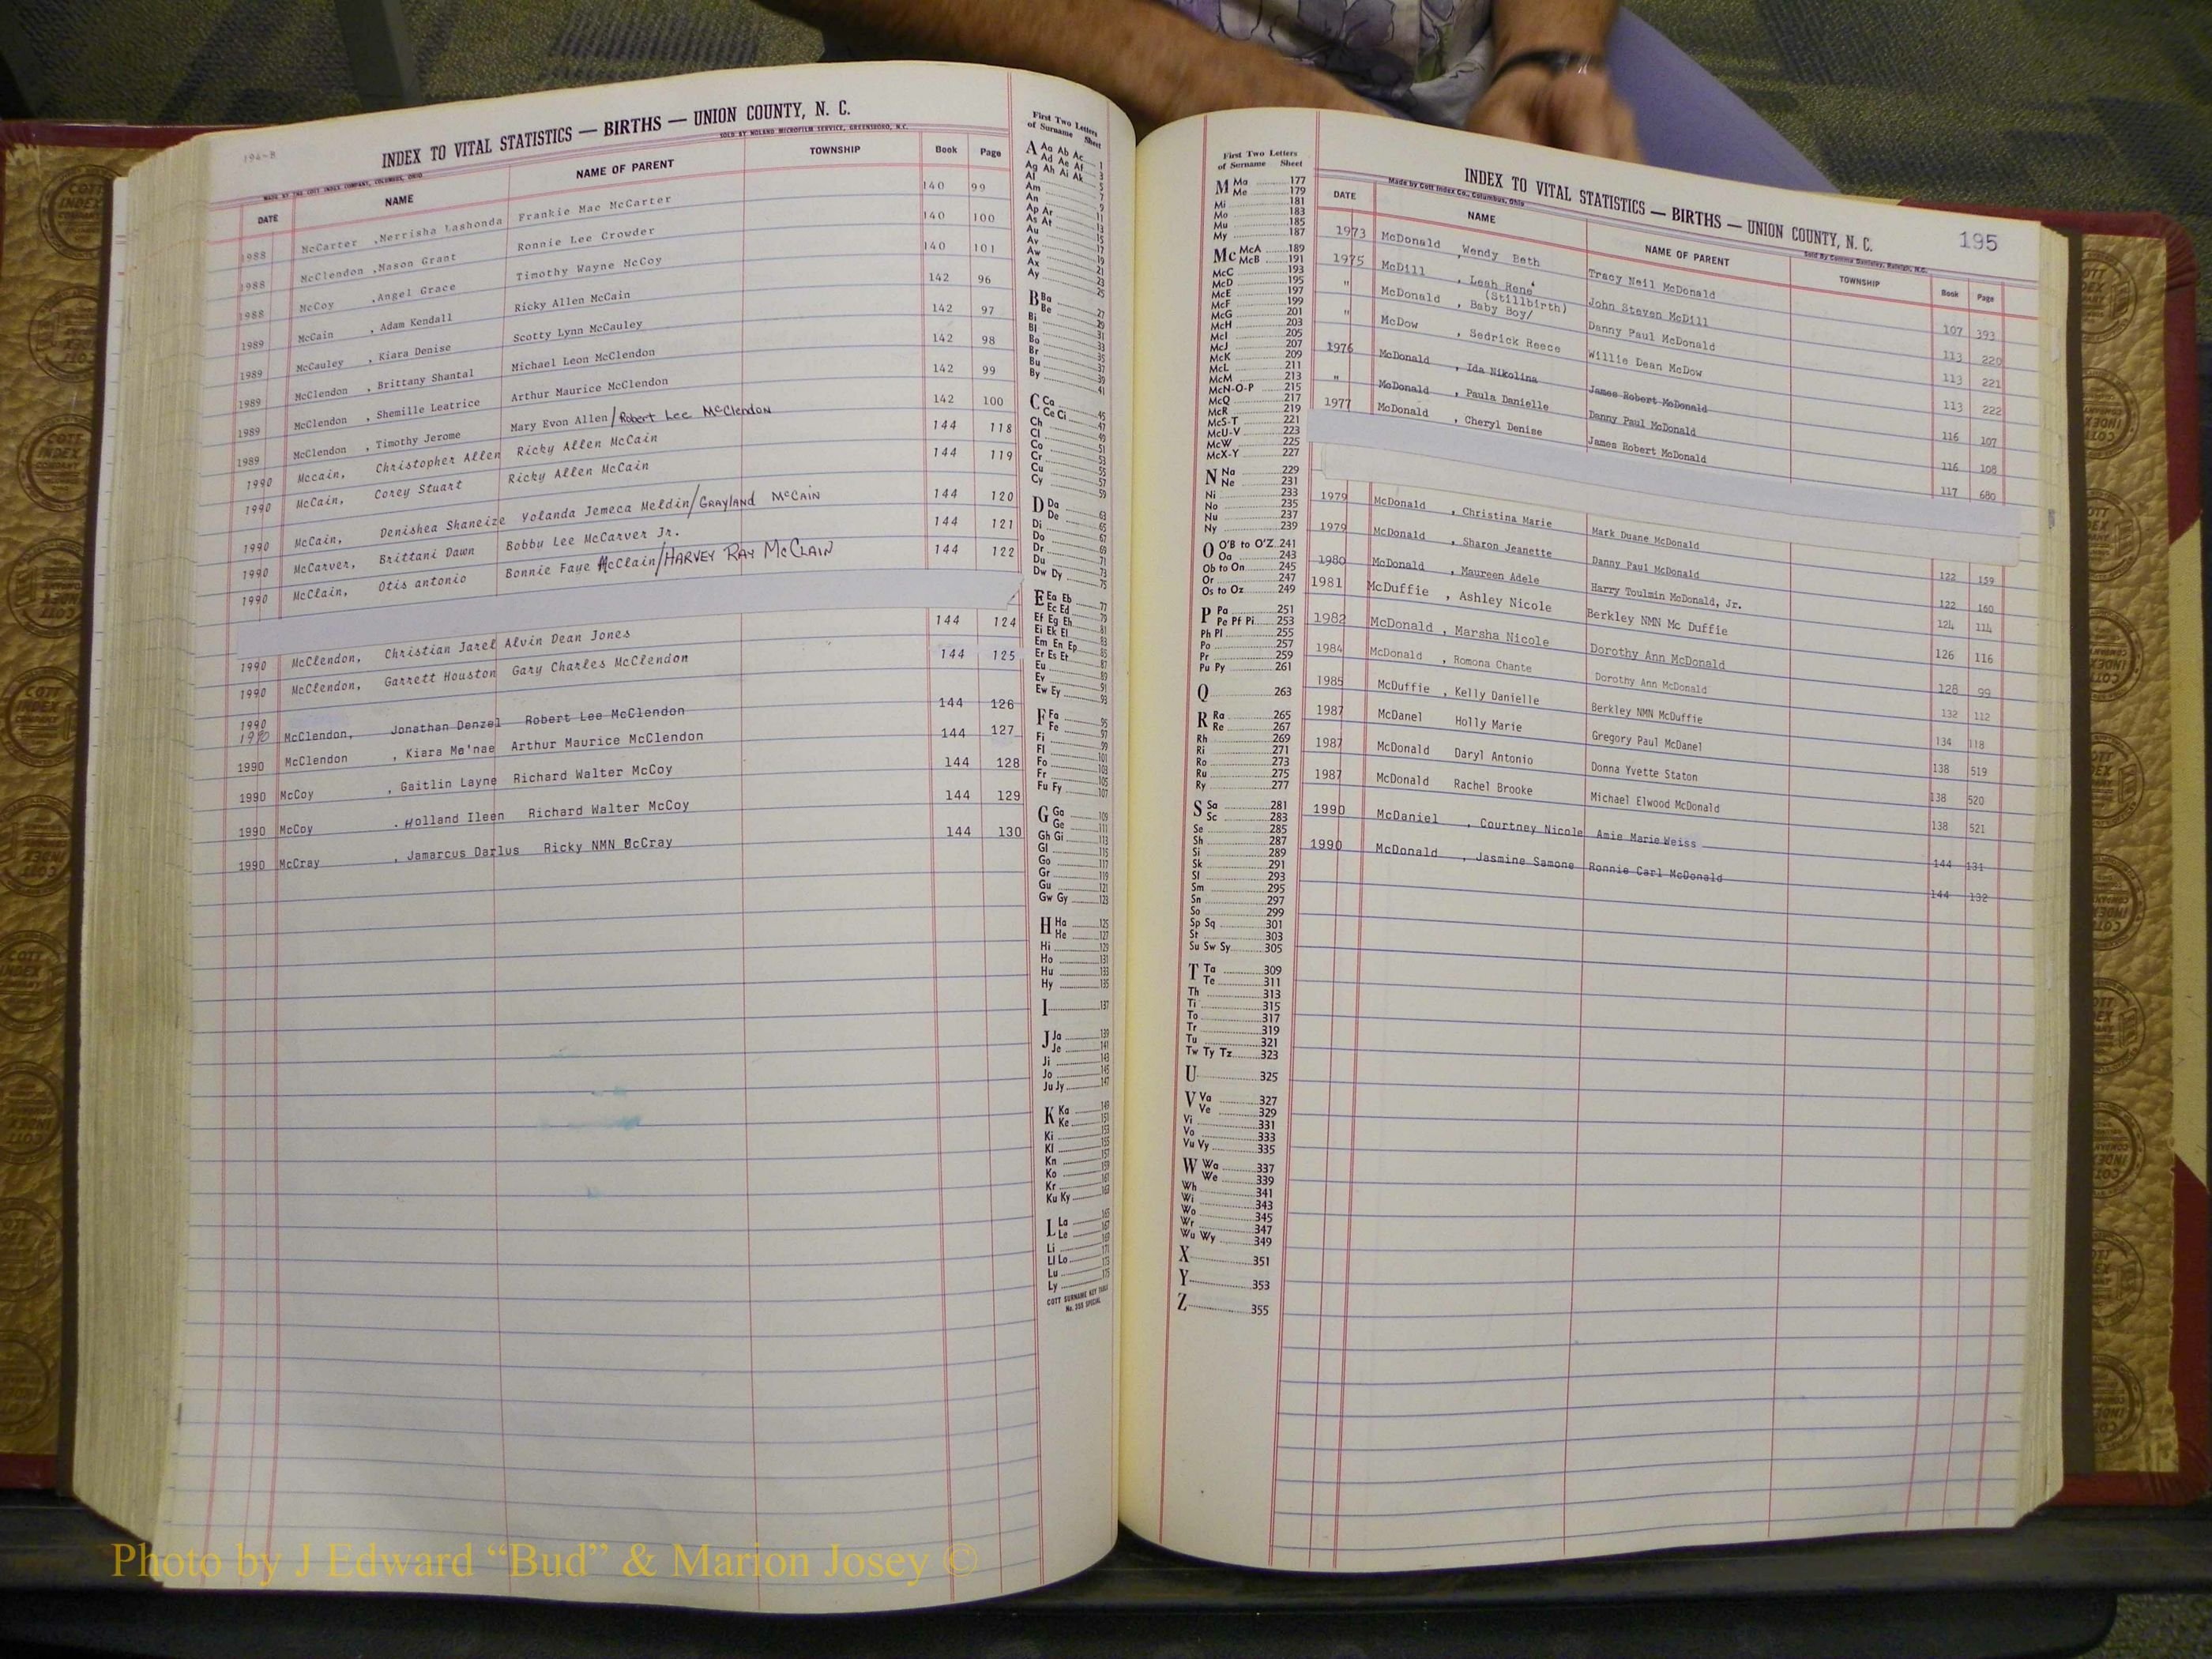 194-B
INDEX TO VITAL STATISTICS — BIRTHS — UNION COUNTY, N. C.
MADE BY THE COTT INDEX COMPANY, COLUMBUS, OHIO SOLD BY NOLAND MICROFILM SERVICE, GREENSBORO, N.C.
DATE NAME NAME OF PARENT TOWNSHIP Book Page
1988 McCarter ,Merrisha Lashonda Frankie Mae McCarter 140 99
1988 McClendon ,Mason Grant Ronnie Lee Crowder 140 100
1988 McCoy ,Angel Grace Timothy Wayne McCoy 140 101
1989 McCain , Adam Kendall Ricky Allen McCain 142 96
1989 McCauley , Kiara Denise Scotty Lynn McCauley 142 97
1989 McClendon , Brittany Shantal Michael Leon McClendon 142 98
1989 McClendon , Shemille Leatrice Arthur Maurice McClendon 142 99
1989 McClendon , Timothy Jerome Mary Evon Allen/Robert Lee McClendon 142 100
1990 Mccain, Christopher Allen Ricky Allen McCain 144 118
1990 McCain, Corey Stuart Ricky Allen McCain 144 119
1990 McCain, Denishea Shaneize Yolanda Jemeca Meldin/GRAYLAND McCAIN 144 120
1990 McCarver, Brittani Dawn Bobby Lee McCarver Jr. 144 121
1990 McClain, Otis antonio Bonnie Faye McClain/HARVEY RAY McCLAIN 144 122
1990 McClendon, Christian Jarel Alvin Dean Jones 144 124
1990 McClendon, Garrett Houston Gary Charles McClendon 144 125
1990
1990 McClendon, Jonathan Denzel Robert Lee McClendon 144 126
1990 McClendon , Kiara Me'nae Arthur Maurice McClendon 144 127
1990 McCoy , Gaitlin Layne Richard Walter McCoy 144 128
1990 McCoy . Holland Ileen Richard Walter McCoy 144 129
1990 McCray , Jamarcus Darlus Ricky NMN McCray 144 130
First Two Letters
of Surname Sheet
A Aa Ab Ac 1
Ad Ae Af 3
Ag Ah Ai Ak 5
Al 7
Am 9
An 11
Ap Ar 13
As At 15
Au 17
Av 19
Aw 21
Ax 23
Ay 25
B Ba 27
Be 29
Bi 31
Bl 33
Bo 35
Br 37
Bu 39
By 41
C Ca 45
Ce Ci 47
Ch 49
Cl 51
Co 53
Cr 55
Cu 57
Cy 59
D Da 63
De 65
Di 67
Do 69
Dr 71
Du 73
Dw Dy 75
E Ea Eb 77
Ec Ed 79
Ef Eg Eh 81
Ei Ek El 83
Em En Ep 85
Er Es Et 87
Eu 89
Ev 91
Ew Ey 93
F Fa 95
Fe 97
Fi 99
Fl 101
Fo 103
Fr 105
Fu Fy 107
G Ga 109
Ge 111
Gh Gi 113
Gl 115
Go 117
Gr 119
Gu 121
Gw Gy 123
H Ha 125
He 127
Hi 129
Ho 131
Hu 133
Hy 135
I 137
J Ja 139
Je 141
Ji 143
Jo 145
Ju Jy 147
K Ka 149
Ke 151
Ki 153
Kl 155
Kn 157
Ko 159
Kr 161
Ku Ky 163
L La 165
Le 167
Li 169
Ll Lo 171
Lu 173
Ly 175
COTT SURNAME KEY TABLE
No. 355 SPECIAL
First Two Letters
of Surname Sheet
M Ma 177
Me 179
Mi 181
Mo 183
Mu 185
My 187
Mc McA 189
McB 191
McC 193
McD 195
McE 197
McF 199
McG 201
McH 203
McI 205
McJ 207
McK 209
McL 211
McM 213
McN-O-P 215
McQ 217
McR 219
McS-T 221
McU-V 223
McW 225
McX-Y 227
N Na 229
Ne 231
Ni 233
No 235
Nu 237
Ny 239
O O'B to O'Z 241
Oa 243
Ob to On 245
Or 247
Os to Oz 249
P Pa 251
Pe Pf Pi 253
Ph Pl 255
Po 257
Pr 259
Pu Py 261
Q 263
R Ra 265
Re 267
Rh 269
Ri 271
Ro 273
Ru 275
Ry 277
S Sa 281
Sc 283
Se 285
Sh 287
Si 289
Sk 291
Sl 293
Sm 295
Sn 297
So 299
Sp Sq 301
St 303
Su Sw Sy 305
T Ta 309
Te 311
Th 313
Ti 315
To 317
Tr 319
Tu 321
Tw Ty Tz 323
U 325
V Va 327
Ve 329
Vi 331
Vo 333
Vu Vy 335
W Wa 337
We 339
Wh 341
Wi 343
Wo 345
Wr 347
Wu Wy 349
X 351
Y 353
Z 355
INDEX TO VITAL STATISTICS — BIRTHS — UNION COUNTY, N. C. 195
Made by Cott Index Co., Columbus, Ohio Sold By Raleigh, N.C.
DATE NAME NAME OF PARENT TOWNSHIP Book Page
1973 McDonald , Wendy Beth Tracy Neil McDonald 107 393
1975 McDill , Leah Rene' John Steven McDill 113 220
" McDonald , Baby Boy/ (Stillbirth) Danny Paul McDonald 113 221
" McDow , Sedrick Reece Willie Dean McDow 113 222
1976 McDonald , Ida Nikolina James Robert McDonald 116 107
" McDonald , Paula Danielle Danny Paul McDonald 116 108
1977 McDonald , Cheryl Denise James Robert McDonald 117 680
1979 McDonald , Christina Marie Mark Duane McDonald 122 159
1979 McDonald , Sharon Jeanette Danny Paul McDonald 122 160
1980 McDonald , Maureen Adele Harry Toulmin McDonald, Jr. 124 114
1981 McDuffie , Ashley Nicole Berkley NMN Mc Duffie 126 116
1982 McDonald , Marsha Nicole Dorothy Ann McDonald 128 99
1984 McDonald , Romona Chante Dorothy Ann McDonald 132 112
1985 McDuffie , Kelly Danielle Berkley NMN McDuffie 134 118
1987 McDanel Holly Marie Gregory Paul McDanel 138 519
1987 McDonald Daryl Antonio Donna Yvette Staton 138 520
1987 McDonald Rachel Brooke Michael Elwood McDonald 138 521
1990 McDaniel , Courtney Nicole Amie Marie Weiss 144 131
1990 McDonald , Jasmine Samone Ronnie Carl McDonald 144 132
Photo by J Edward “Bud” & Marion Josey ©